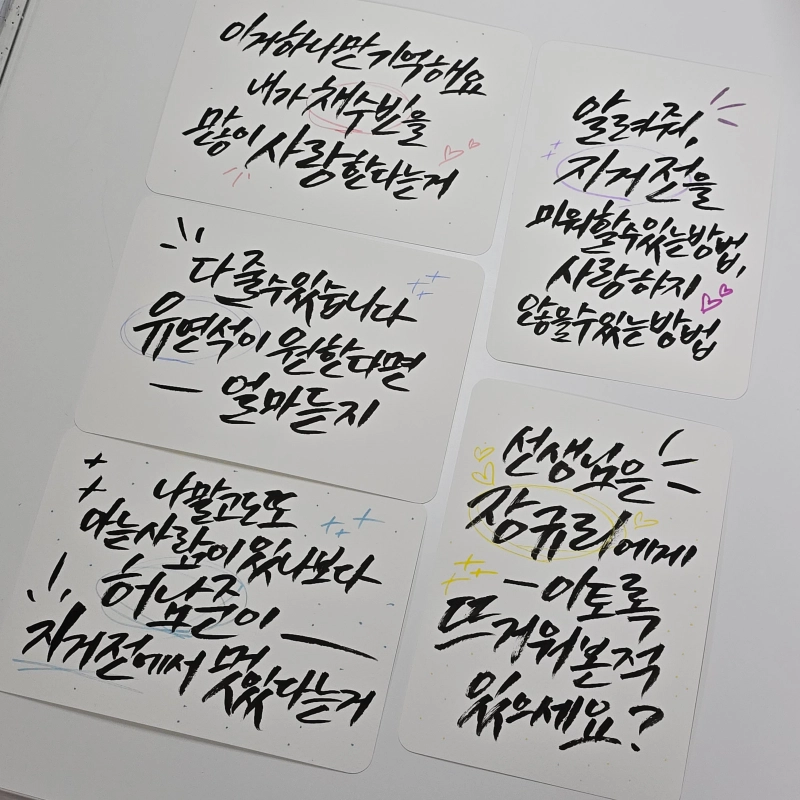 이거하나만기억해요
내가채수빈을
많이사랑한다는거
알려줘,
지거전을
미워할수있는방법,
사랑하지
않을수있는방법
다줄수있습니다
유연석이원한다면
얼마든지
나말고도또
아는사람이있나보다
허남준이
지거전에서멋있다는거
선생님은
장규리에게
이토록
뜨거워본적
있으세요?